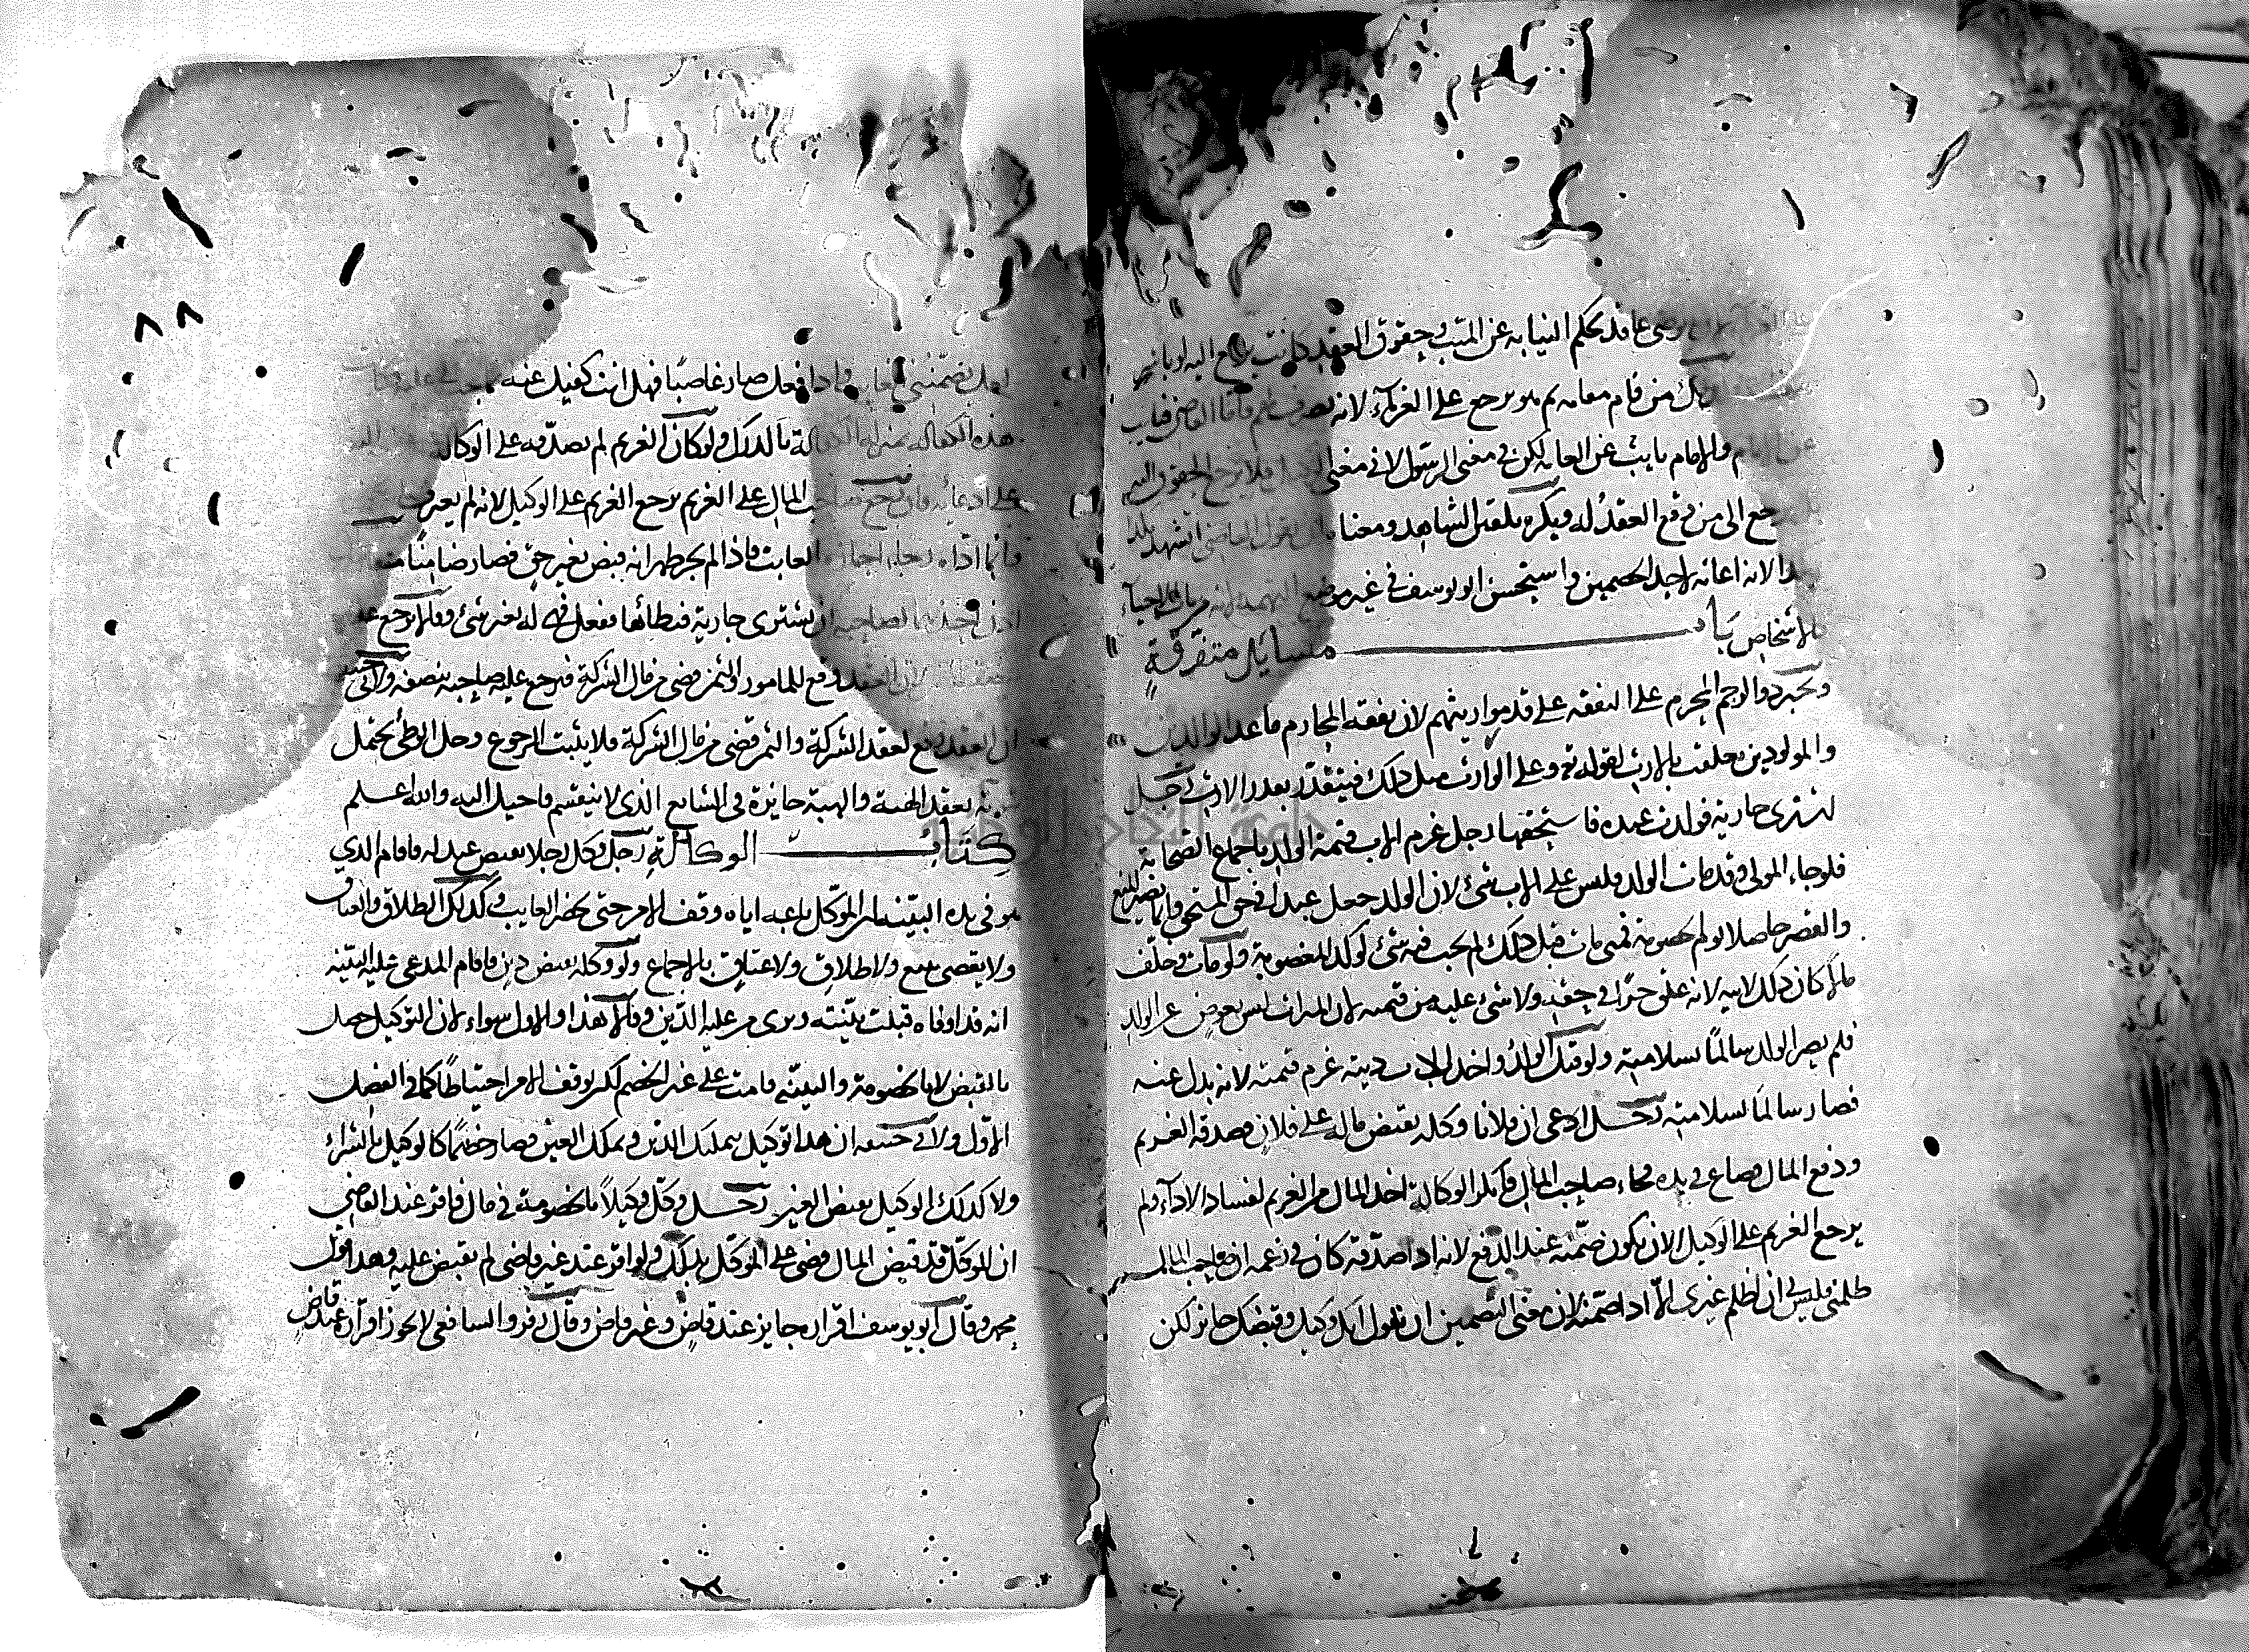 عاقد بحكم النيابة عن الميت وحقوق العقد كانت راجع اليه
من قام مقامه ثم هو يرجع على الغرماء لانه
والامام نايب عن العامة لكن في معنى الرسول لا في معنى فلا يرجع الحقوق اليه
الى من وقع العقد له ويكره تلقين الشاهد ومعناه ان يقول القاضي اتشهد بكذا
لانه اعانة لاحد الخصمين واستحسن ابو يوسف في غير موضع التهمة لانه
الاشخاص باب مسايل متفرقة
ويجبر ذو الرحم المحرم على النفقة على قدر مواريثهم لان نفقة المحارم ما عدا الوالدين
والمولودين تعلقت بالارث لقوله تع وعلى الوارث مثل ذلك فيتقدر بقدر الارث رجل
اشترى جارية فولدت عنده فاستحقها رجل غرم الاب قيمة الولد باجماع الصحابة
فلو جاء المولى وقد مات الولد فليس على الاب شئ لان الولد جعل عبدا في حق المستحق وانما يصير للمنع
والقصر حاصلا بو لم خصومة فمتى مات قبل ذلك لم يجب فيه شئ كولد المغصوبة ولو مات وخلف
مالا كان ذلك لابيه لانه علق حرا في حقه ولا شئ عليه من قيمته لان الميراث ليس بعوض عن الولد
فلم يصر الولد سالما بسلامته ولو قتل الولد واخذ الاب ديته غرم قيمته لانه بدل عنه
فصار سالما بسلامته رجل ادعى ان فلانا وكله بقبض ماله على فلان فصدقه الغريم
ودفع المال فضاع في يده فجاء صاحب المال فانكر الوكالة اخذ المال من الغريم لفساد الاداء ولم
يرجع الغريم على الوكيل الا ان يكون ضمنه عند الدفع لانه اذا صدقه كان في زعمه ان صاحب المال
ظلمني فليس لي ان اظلم غيري الا اذا ضمنه لان معنى التضمين ان يقول انك وكيل وقبضك جايز لكن
٨٨
يضمنني فاذا فعل صار غاصبا فهل انت كفيل عنه
هذه الكفالة بمنزلة الكفالة بالدرك ولو كان الغريم لم يصدقه على الوكالة
على ادعائه فان رجع صاحب المال على الغريم يرجع الغريم على الوكيل لانه لم يعترف
وانما اداه رجاء اجازة الغايب فاذا لم يجز ظهر انه قبض بغير حق فصار ضامنا
اذن احدهما لصاحبه ان يشتري جارية فيطأها ففعل فهي له بغير شئ وقالا يرجع
لان العقد وقع للمامور والثمن قضي من مال الشركة فيرجع عليه صاحبه بنصفه ولابي حنيفة
ان العقد وقع لعقد الشركة والثمن قضي من مال الشركة فلا يثبت الرجوع وحل الوطئ يحتمل
بعقد الهبة والهبة جايزة في الشايع الذي لا ينقسم فاحيل اليه والله اعلم
كتاب الوكالة رجل وكل رجلا بقبض عبد له فاقام الذي
هو في يده البينة ان الموكل باعه اياه وقف الامر حتى يحضر الغايب وكذلك الطلاق والعتاق
ولا يقضى ببيع ولا طلاق ولا عتاق بالاجماع ولو وكله بقبض دين فاقام المدعى عليه البينة
انه قد اوفاه قبلت بينته وبرئ من عليه الدين وقالا هذا والاول سواء لان التوكيل حصل
بالقبض لا بالخصومة والبينة قامت على غير الخصم لكن يوقف الامر احتياطا كما في الفصل
الاول ولابي حنيفة ان هذا توكيل بتمليك الدين وتملك العين فصار خصما كالوكيل بالشراء
ولا كذلك الوكيل بقبض العين رجل وكل وكيلا بالخصومة في مال فاقر عند القاضي
ان الموكل قد قبض المال قضي على الموكل بذلك ولو اقر عند غير قاضي لم يقبض عليه وهذا قول
محمد وقال ابو يوسف اقراره جايز عند قاض وغير قاض وقال زفر والشافعي لا يجوز اقراره عند قاض